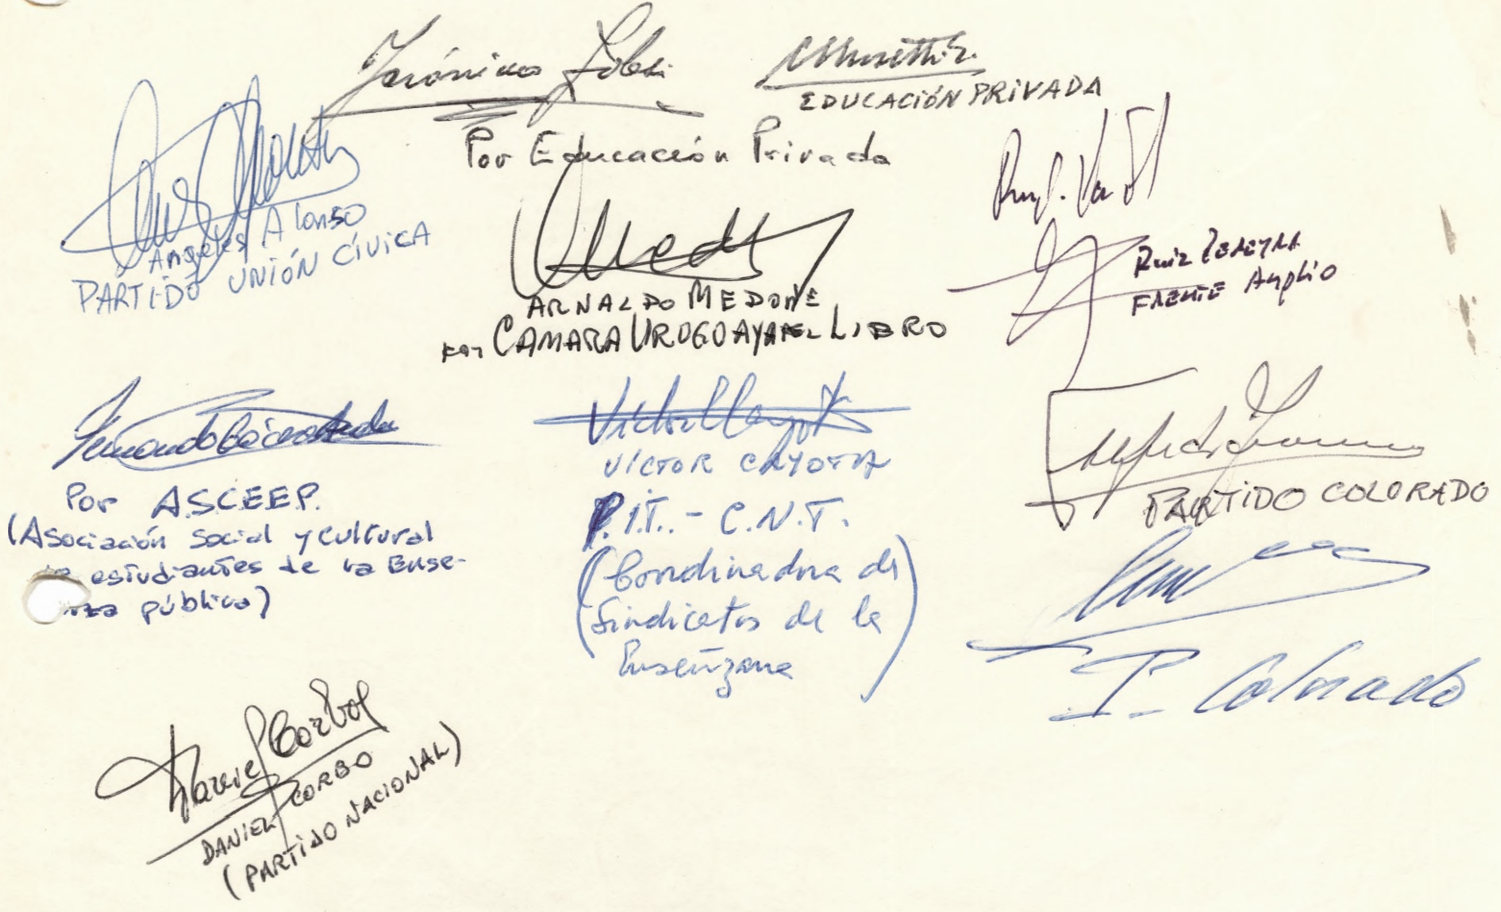 Jerónimo
EDUCACIÓN PRIVADA
Por Educación Privada
Angeles Alonso
PARTIDO UNIÓN CÍVICA
ARNALDO MEDONE
por CAMARA URUGUAYA DEL LIBRO
Ruiz PEREYRA
FRENTE Amplio
Por A.S.C.E.E.P.
(Asociación Social y Cultural
estudiantes de la Ense-
pública)
VICTOR CAYOTA
P.I.T. - C.N.T.
(Coordinadora de
Sindicatos de la
Enseñanza)
PARTIDO COLORADO
P. Colorado
Daniel Corbo
DANIEL CORBO
(PARTIDO NACIONAL)